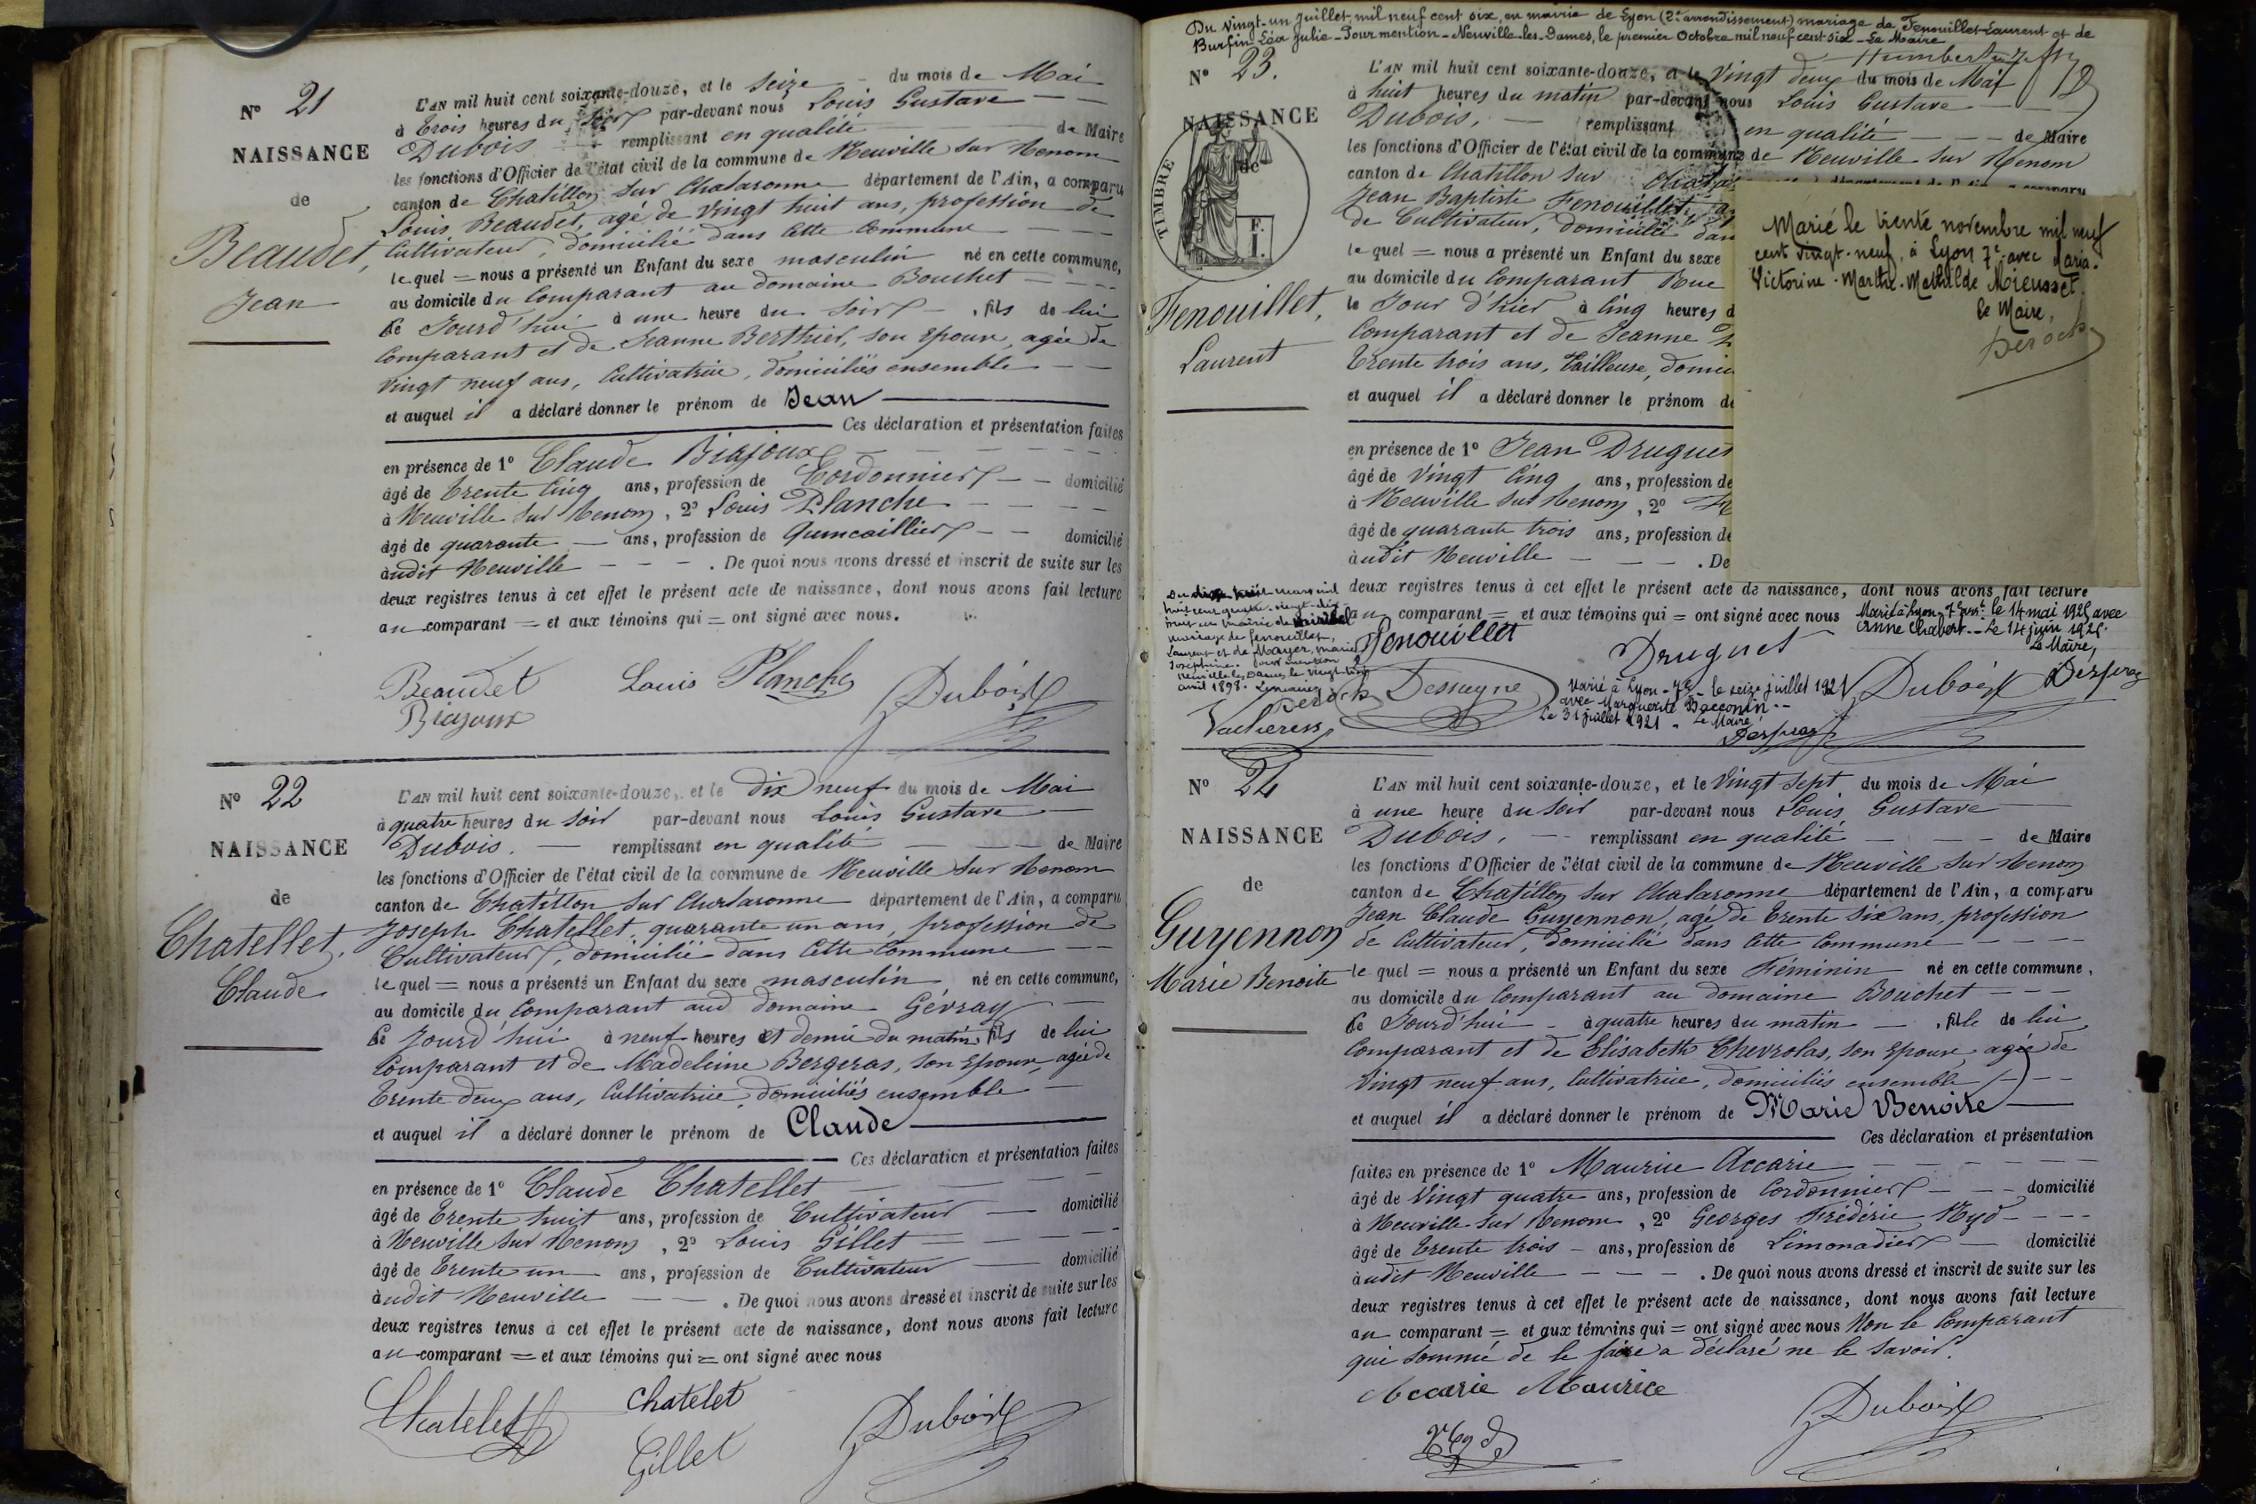 Nº 21
NAISSANCE
de
Beaudet,
Jean
L'AN mil huit cent soixante-douze, et le Seize du mois de Mai
à trois heures du soir par-devant nous Louis Gustave
Dubois remplissant en qualité de Maire
les fonctions d'Officier de l'état civil de la commune de Neuville sur Renom
canton de Chatillon sur Chalaronne département de l'Ain, a comparu
Louis Beaudet, agé de vingt huit ans, profession de
Cultivateur, domicilié dans cette commune
lequel = nous a présenté un Enfant du sexe masculin né en cette commune,
au domicile du Comparant au domaine Bouchet
Ce Jourd'hui à une heure du soir, fils de lui
Comparant et de Jeanne Berthier, son épouse, agée de
vingt neuf ans, Cultivatrice, domiciliés ensemble
et auquel il a déclaré donner le prénom de Jean
Ces déclaration et présentation faites
en présence de 1º Claude Biajoux
âgé de trente cinq ans, profession de Cordonnier domicilié
à Neuville sur Renom, 2º Louis Planche
âgé de quarante ans, profession de Quincaillier domicilié
audit Neuville. De quoi nous avons dressé et inscrit de suite sur les
deux registres tenus à cet effet le présent acte de naissance, dont nous avons fait lecture
au comparant = et aux témoins qui = ont signé avec nous.
Beaudet Louis Planche Dubois
Biajoux
Nº 22
NAISSANCE
de
Chatellet,
Claude
L'AN mil huit cent soixante-douze, et le dix neuf du mois de Mai
à quatre heures du soir par-devant nous Louis Gustave
Dubois. remplissant en qualité de Maire
les fonctions d'Officier de l'état civil de la commune de Neuville sur Renom
canton de Chatillon sur Chalaronne département de l'Ain, a comparu
Joseph Chatellet, quarante un ans, profession de
Cultivateur, domicilié dans cette commune
lequel = nous a présenté un Enfant du sexe masculin, né en cette commune,
au domicile du Comparant aud domaine Gévray
Ce Jourd'hui à neuf heures et demie du matin fils de lui
Comparant et de Madeleine Bergeras, son épouse, agée de
trente deux ans, Cultivatrice, domiciliés ensemble
et auquel il a déclaré donner le prénom de Claude
Ces déclaration et présentation faites
en présence de 1º Claude Chatellet
âgé de trente huit ans, profession de Cultivateur domicilié
à Neuville sur Renom, 2º Louis Gillet
âgé de trente un ans, profession de Cultivateur domicilié
audit Neuville. De quoi nous avons dressé et inscrit de suite sur les
deux registres tenus à cet effet le présent acte de naissance, dont nous avons fait lecture
au comparant = et aux témoins qui = ont signé avec nous
Chatelet chatelet Dubois
Gillet
Du vingt-un Juillet mil neuf cent six, en mairie de Lyon (2e arrondissement) mariage de Fenouillet Laurent et de
Burfin Léa Julie - Pour mention - Neuville-les-Dames, le premier Octobre mil neuf cent six - Le Maire
Humbert
Nº 23.
NAISSANCE
de
TIMBRE
F.
I.
Fenouillet,
Laurent
L'AN mil huit cent soixante-douze, et le Vingt deux du mois de Mai
à huit heures du matin par-devant nous Louis Gustave
Dubois, remplissant en qualité de Maire
les fonctions d'Officier de l'état civil de la commune de Neuville sur Renom
canton de Chatillon sur
Jean Baptiste Fenouillet,
de Cultivateur, domicilié
lequel = nous a présenté un Enfant du sexe
au domicile du Comparant Rue
le Jour d'hier à cinq heures
Comparant et de Jeanne
trente trois ans, tailleuse,
et auquel il a déclaré donner le prénom
en présence de 1º Jean Druguet
âgé de vingt cinq ans, profession de
à Neuville sur Renom, 2º
âgé de quarante trois ans, profession de
audit Neuville
deux registres tenus à cet effet le présent acte de naissance, dont nous avons fait lecture
au comparant = et aux témoins qui = ont signé avec nous
Marié le trente novembre mil neuf
cent vingt-neuf, à Lyon 7e avec Maria-
Victorine-Marthe-Mathilde Mieusset.
le Maire,
Marié à Lyon, 7e arrt. le 14 mai 1925 avec
Anne Chabert. - Le 14 juin 1925.
Le Maire,
mariage de Fenouillet,
Laurent et de Mayer, Marie
Joséphine. Pour mention
Neuville les Dames le vingt
avril 1898.
Fenouillet Druguet
Dubois
Marié à Lyon - 7e - le seize juillet 1921
avec Marguerite Bacconin
Le 31 juillet 1921 - Le Maire
Nº 24
NAISSANCE
de
Guyennon
Marie Benoite
L'AN mil huit cent soixante-douze, et le Vingt Sept du mois de Mai
à une heure du soir par-devant nous Louis Gustave
Dubois, remplissant en qualité de Maire
les fonctions d'Officier de l'état civil de la commune de Neuville sur Renom
canton de Chatillon sur Chalaronne département de l'Ain, a comparu
Jean Claude Guyennon, agé de trente six ans, profession
de Cultivateur, domicilié dans cette commune
lequel = nous a présenté un Enfant du sexe Féminin né en cette commune,
au domicile du Comparant au domaine Bouchet
Ce Jourd'hui à quatre heures du matin, fille de lui
Comparant et de Elisabeth Chevrolas, son épouse, agée de
vingt neuf ans, Cultivatrice, domiciliés ensemble
et auquel il a déclaré donner le prénom de Marie Benoite
Ces déclaration et présentation
faites en présence de 1º Maurice Accarie
âgé de vingt quatre ans, profession de Cordonnier domicilié
à Neuville sur Renom, 2º Georges Frédéric Ryd
âgé de trente trois ans, profession de Limonadier domicilié
audit Neuville. De quoi nous avons dressé et inscrit de suite sur les
deux registres tenus à cet effet le présent acte de naissance, dont nous avons fait lecture
au comparant = et aux témoins qui = ont signé avec nous Non le Comparant
qui sommé de le faire a déclaré ne le savoir.
Accarie Maurice Dubois